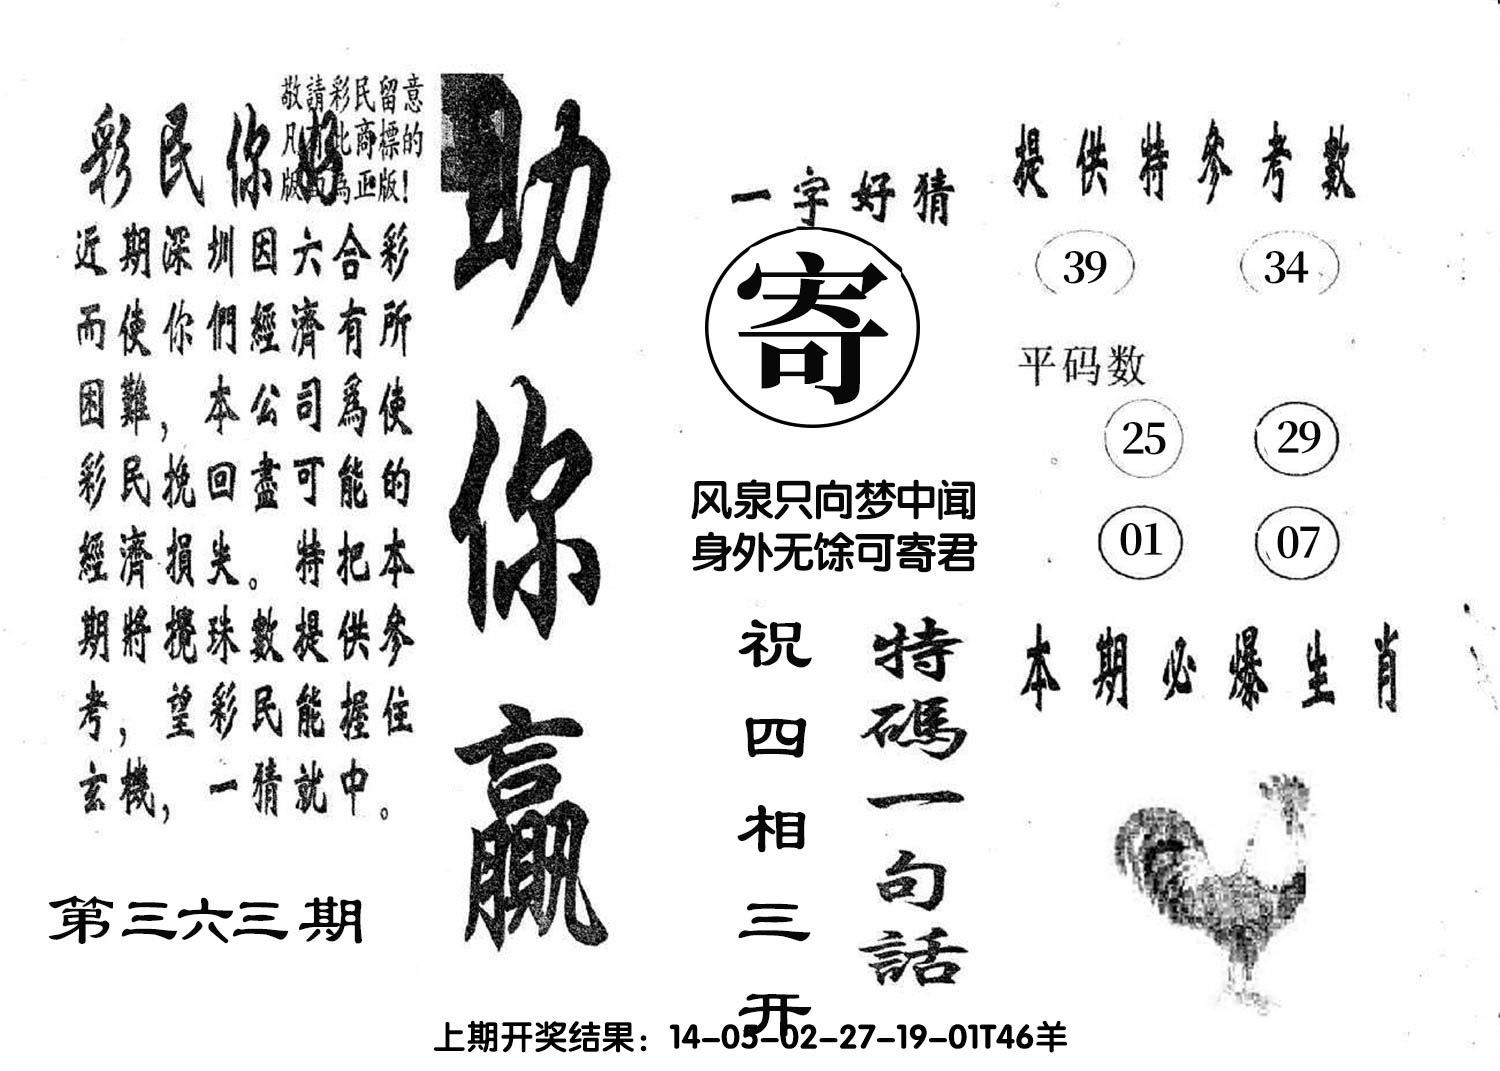 敬請彩民留意
凡有此商標的
版面為正版!
彩民你好
近期深圳因六合彩
而使你們經濟有所
困難，本公司爲使
彩民挽回盡可能的
經濟損失。特把本
期將攪珠數提供參
考，望彩民能握住
玄機，一猜就中。
第三六三期
助你赢
一字好猜
寄
风泉只向梦中闻
身外无馀可寄君
特碼一句話
祝四相三开
提供特參考數
39 34
平码数
25 29
01 07
本期必爆生肖
上期开奖结果：14-05-02-27-19-01T46羊